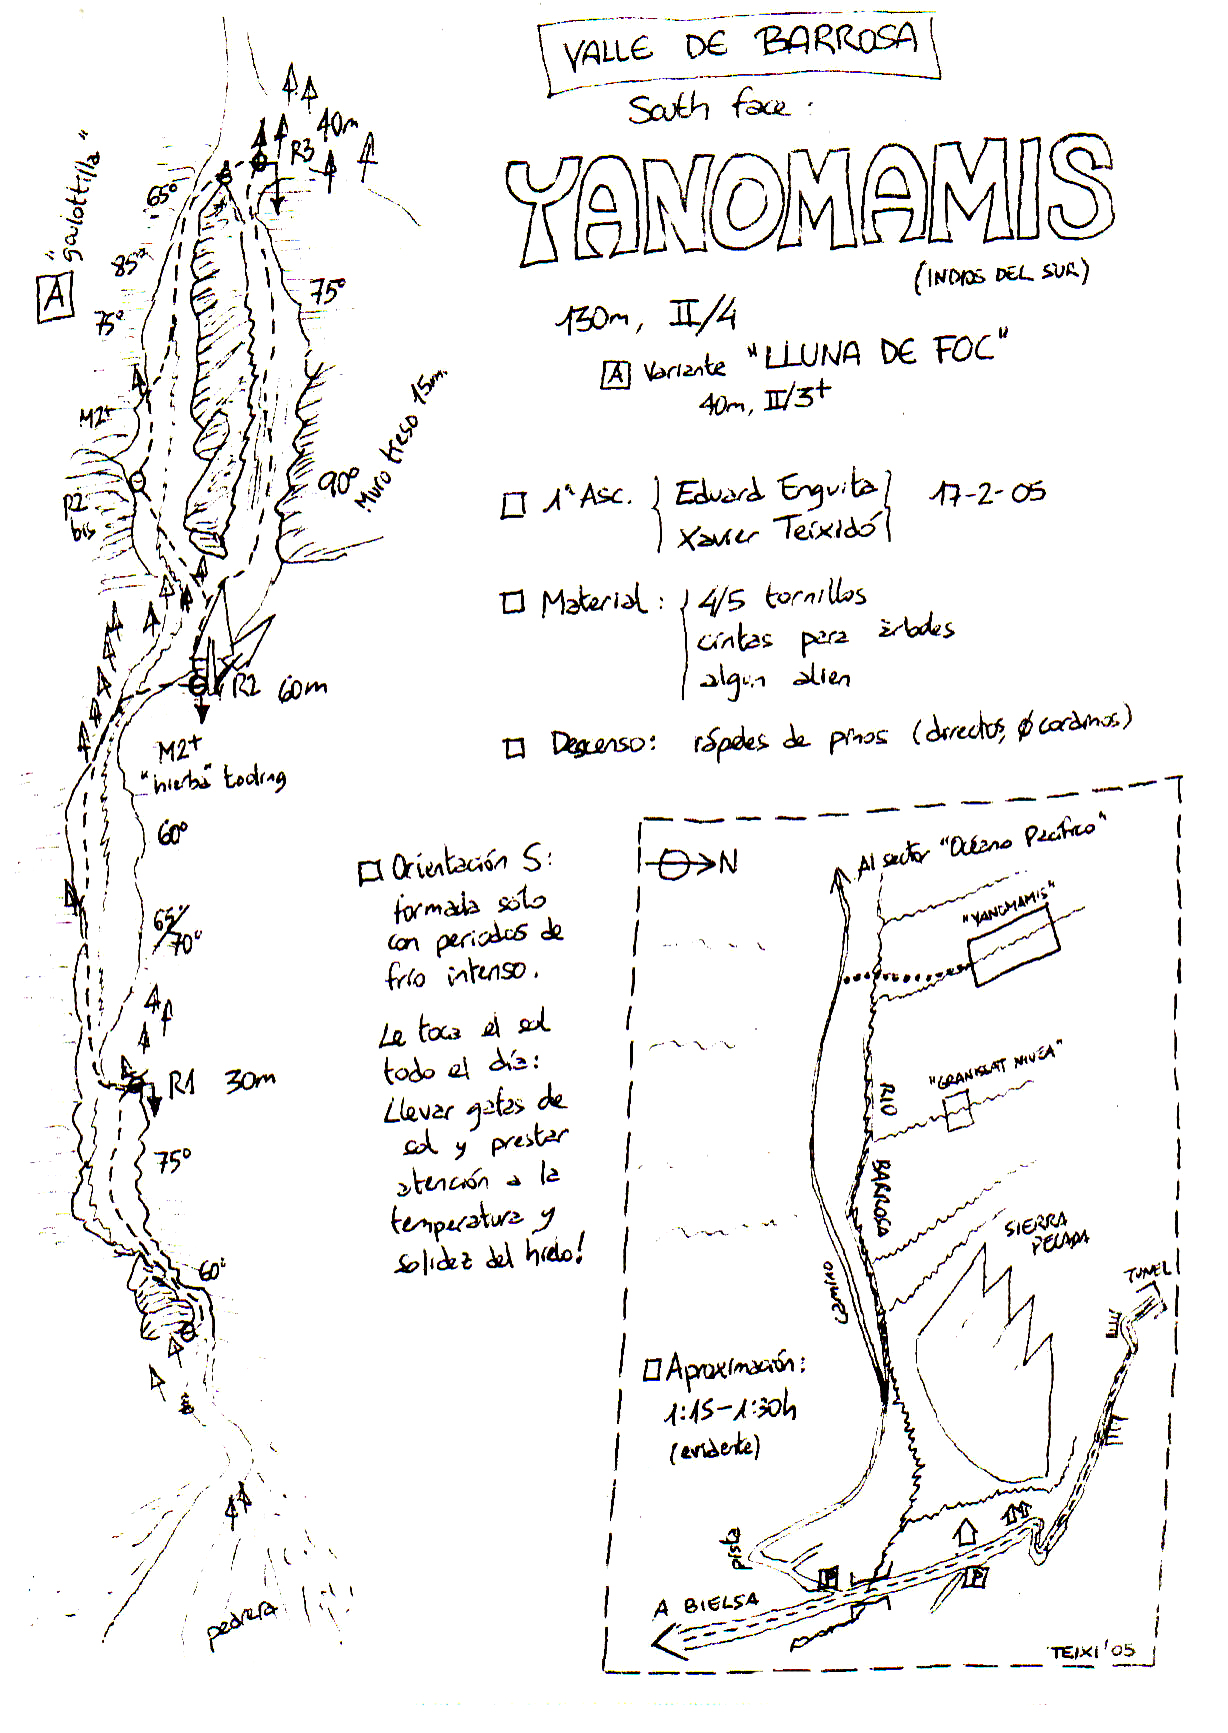 VALLE DE BARROSA
South face:
YANOMAMIS
(INDIOS DEL SUR)
130m, II/4
A Variante "LLUNA DE FOC"
40m, II/3+
1ª Asc. Eduard Enguita 17-2-05
Xavier Teixidó
Material: 4/5 tornillos
cintas para àrboles
algun alien
Descenso: rápeles de pinos (directos, Ø cordinos)
Orientación S:
formada sólo
con periodos de
frío intenso.
Le toca el sol
todo el día:
Llevar gafas de
sol y prestar
atención a la
temperatura y
solidez del hielo!
A
"goulottilla"
40m
R3
65º
85º
75º
75º
M2+
R2
bis
90º
Muro tieso 15m.
R2 60m
M2+
"hierba" toding
60º
65º/70º
R1 30m
75º
60º
pedrera
N
Al sector "Océano Pacífico"
"YANOMAMIS"
"GRANISSAT NIVEA"
RIO
BARROSA
SIERRA
PELADA
TUNEL
camino
Aproximación:
1:15-1:30h
(evidente)
pista
P
P
A BIELSA
TEIXI '05